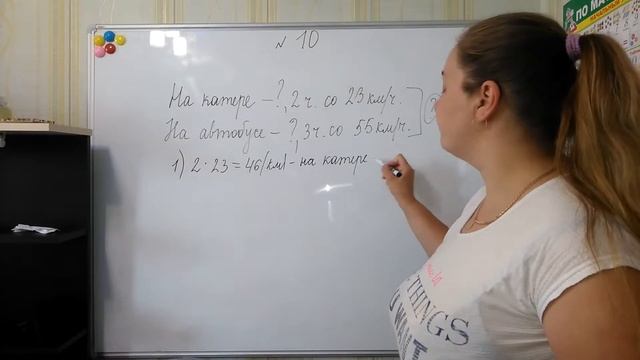 № 10
На катере – ?, 2 ч. со 23 км/ч.
На автобусе – ?, 3 ч. со 55 км/ч.
?
1) 2 · 23 = 46 (км) – на катере
ПО МА
THINGS
WANT